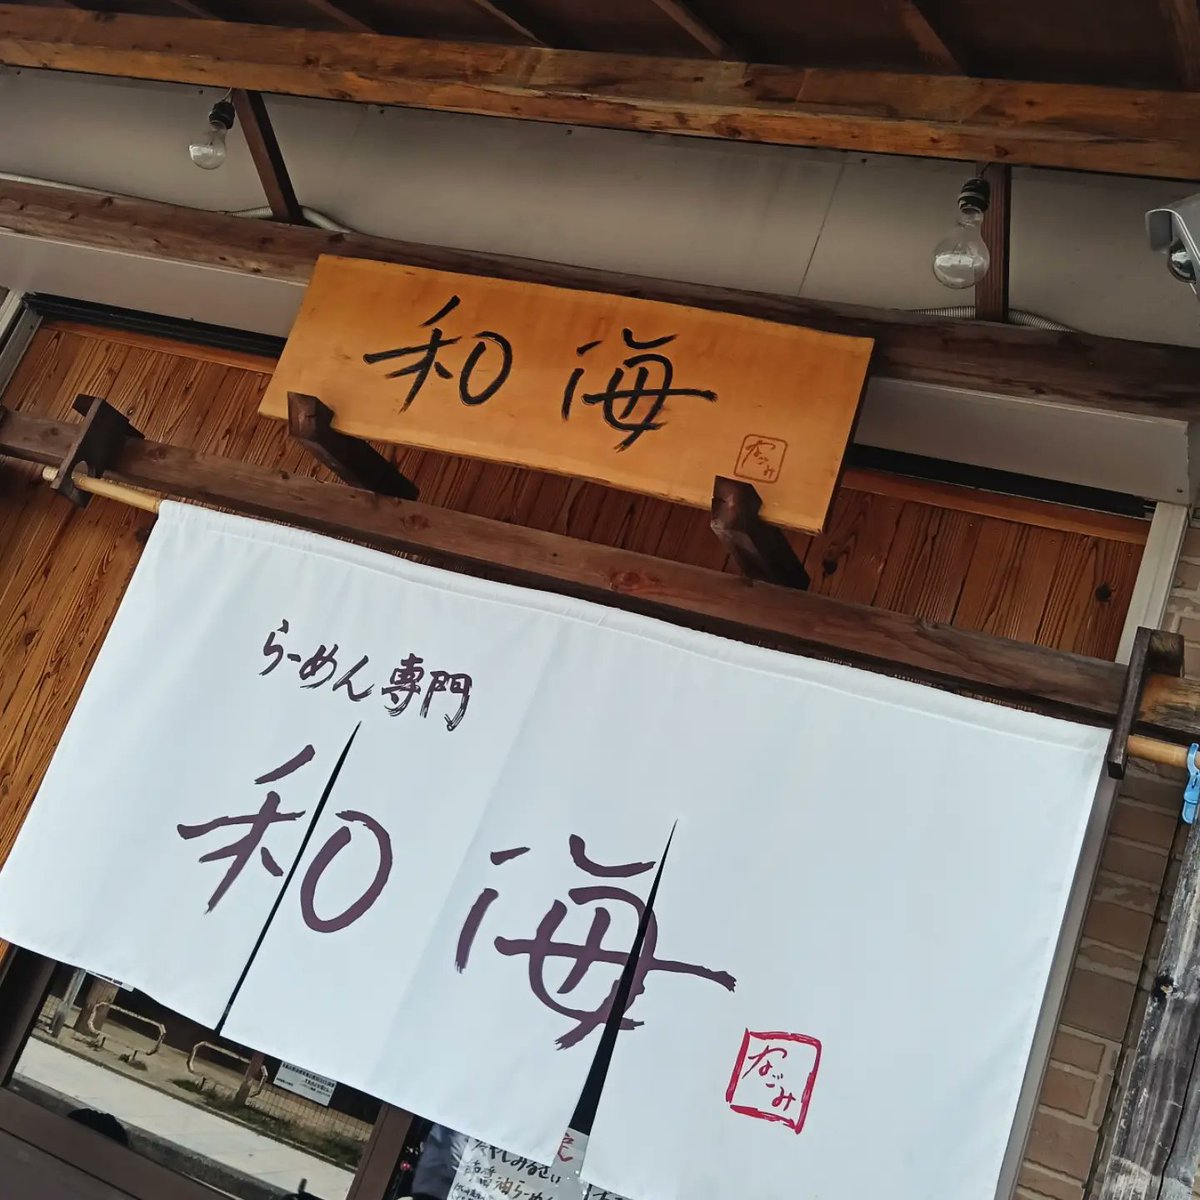 和海
なごみ
らーめん専門
和海
なごみ